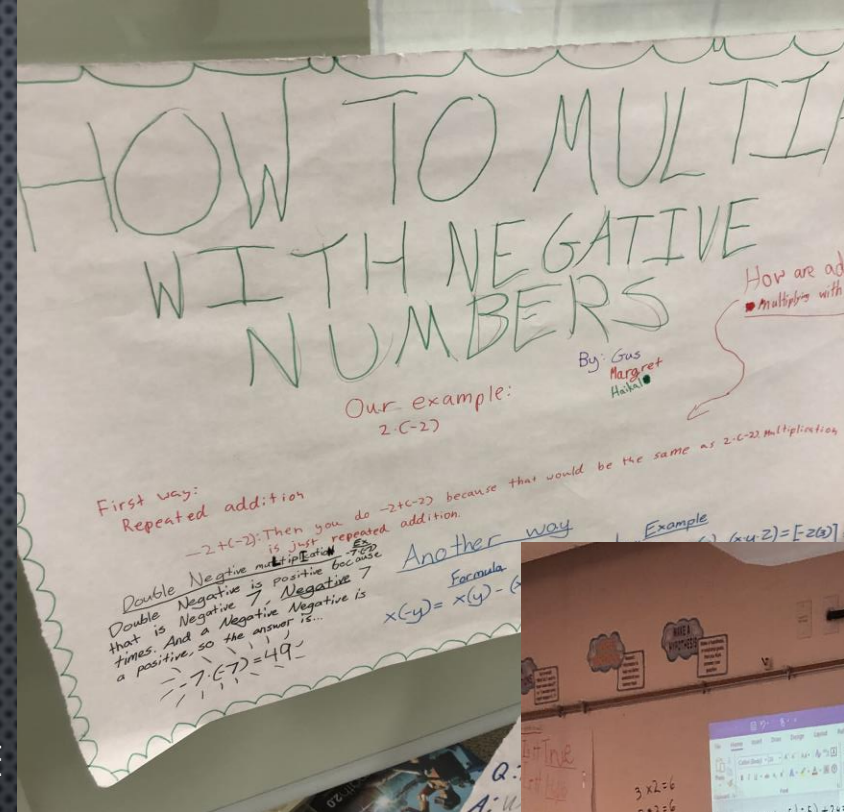 HOW TO MULTI
WITH NEGATIVE
NUMBERS
By: Gus
Margret
Haikal
How are ad
Multiplis with
Our example:
2·(-2)
First way:
Repeated addition
-2+(-2): Then you do -2+(-2) because that would be the same as 2·(-2). Multiplication
is just repeated addition.
Double Negtive multiplEcation Ex -7·(-7)
Double Negative is positive because
that is Negative 7, Negative 7
times. And a Negative Negative is
a positive, so the answer is...
-7·(-7)=49
Another way
Formula
x(-y)= x(y) -
Example
(x·y·2)=[-2(3)]
Q:
A:
MAKE A
HYPOTHESIS
True
3x2=6
Home Insert Draw Design Layout